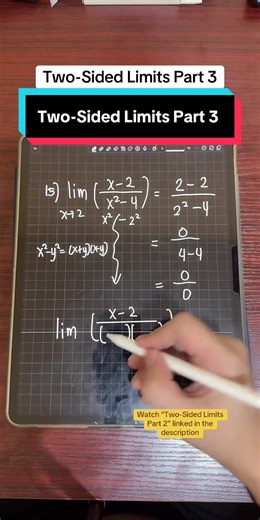 Two-Sided Limits Part 3
Two-Sided Limits Part 3
15) lim x→2 (x-2 / x²-4) = 2-2 / 2²-4
x² - 2²
x²-y²=(x+y)(x-y)
= 0 / 4-4
= 0 / 0
lim (x-2 / ( )(
Watch "Two-Sided Limits
Part 2" linked in the
description